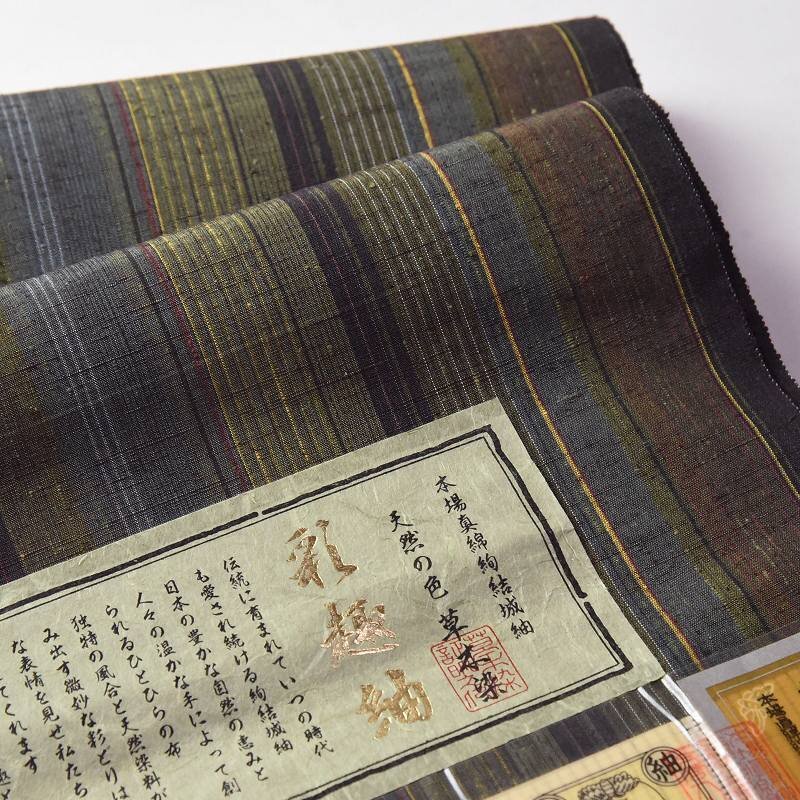 本場真綿絢結城紬
天然の色 草木染
彩趣紬
伝統に育まれていつの時代
も愛され続ける絢結城紬
日本の豊かな自然の恵みと
人々の温かな手によって創
られるひとひらの布
独特の風合と天然染料が
み出す微妙な彩どりは
な表情を見せ私たち
てくれます
本場真綿
紬